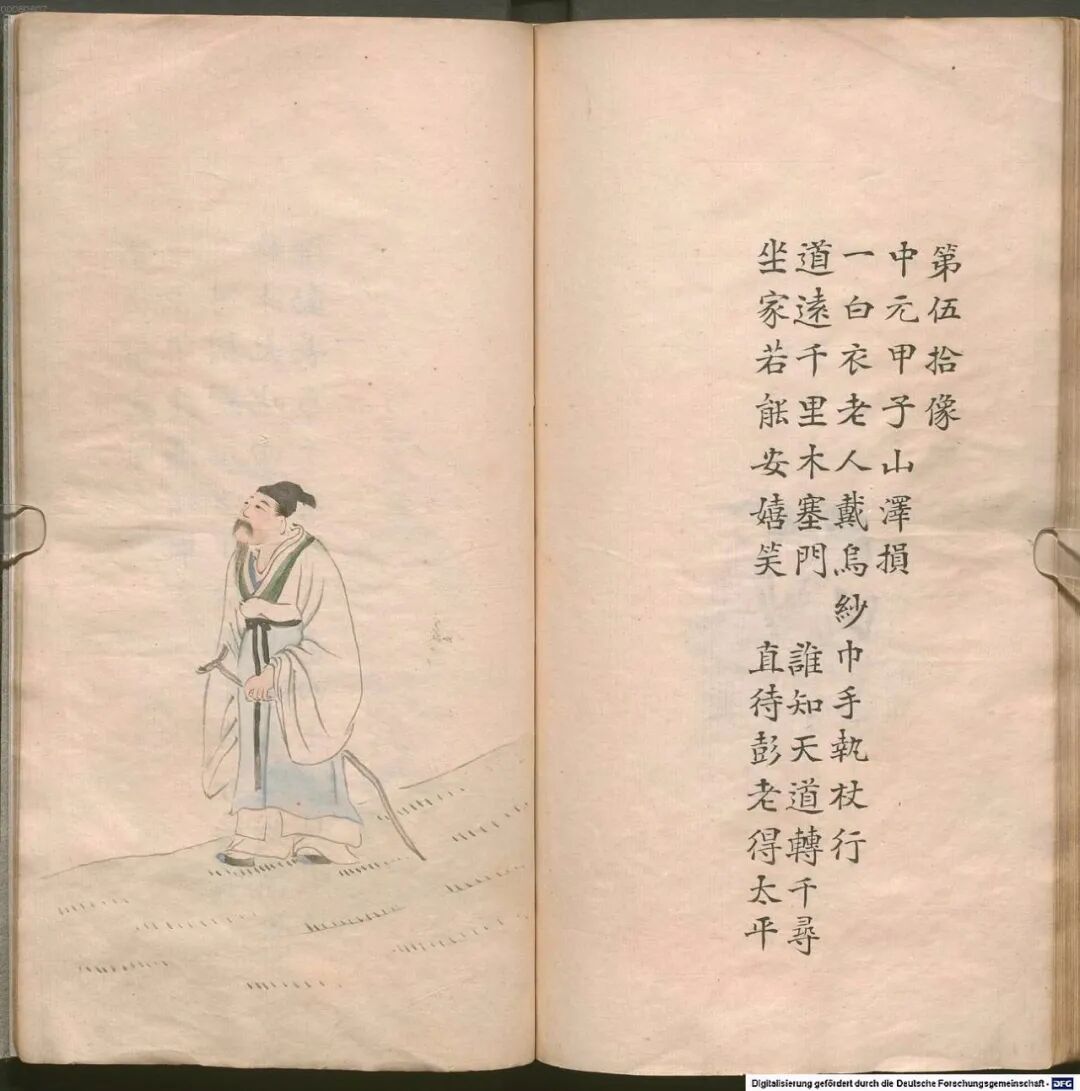 第伍拾像
中元甲子山澤損
一白衣老人戴烏紗巾手執杖行
道遠千里木塞門 誰知天道轉千尋
坐家若能安嬉笑 直待彭老得太平
Digitalisierung gefördert durch die Deutsche Forschungsgemeinschaft - DFG